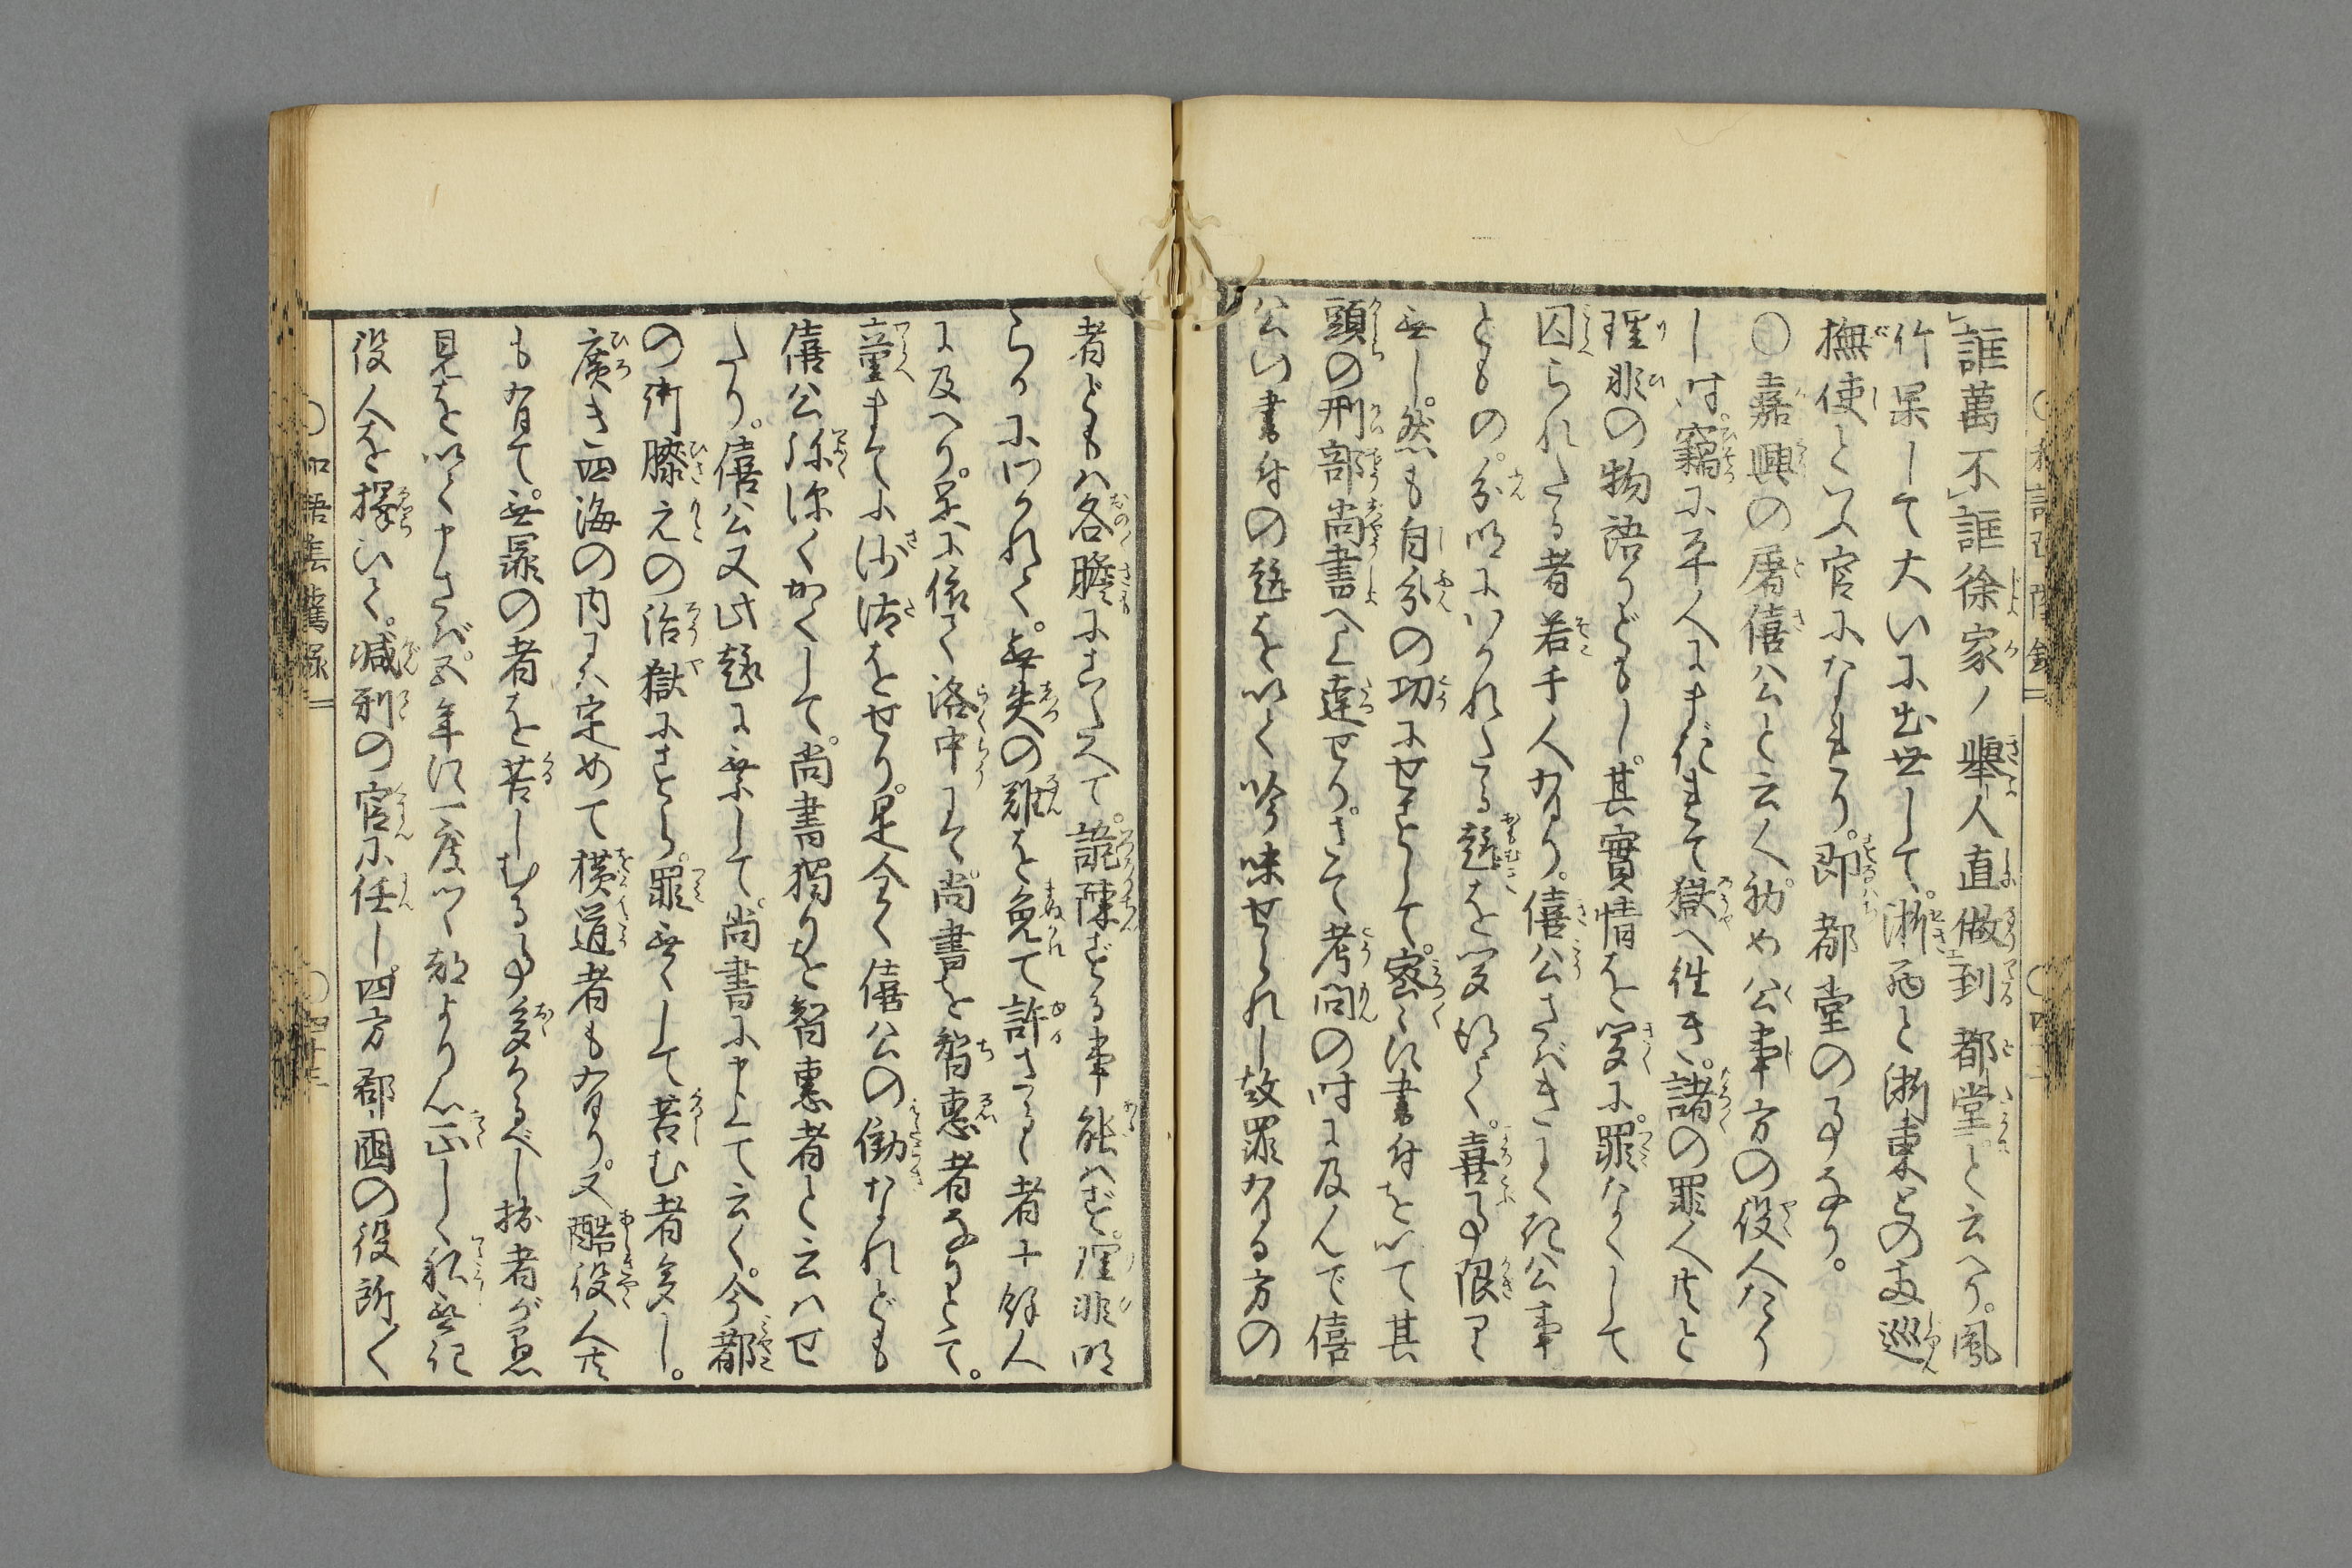 誆萬不誆徐家ノ舉人直做到都堂と云へり。風
竹果して大いに出世して。浙西と浙東との両巡
撫使と云官になれり。即都堂の事なり。
○嘉興の屠僖公と云人。初め公事方の役人たり
し時。竊に平人にまぎれて獄へ往き。諸の罪人共と
理非の物語りどもし。其實情を聞に。罪なくして
囚られたる者若干人有り。僖公さばきにくき公事
ともの。分明にいひわかれたる趣を聞得て。喜事限り
無し。然も自分の功にせずして。密々に書付を以て其
頭の刑部尚書へ上達せり。さて考問の時に及んで僖
公の書付の趣を以て吟味せられし故罪有る方の
者どもハ各膽にこたへて。詭陳ずる事能ハず。理非明
らかにわかれて。無失の難を免て許さるゝ者十餘人
に及へり。是に依て洛中にて。尚書を智惠者なりとて。
童まてに沙汰をせり。是全く僖公の働なれども
僖公弥深くかくして。尚書獨りを智惠者と云ハせ
たり。僖公又此趣に乗して。尚書に申上て云く。今都
の御膝元の治獄にすら。罪無くして苦む者多し。
廣き四海の内にハ定めて横道者も有り。又酷役人共
も有て。無罪の者を苦しむる事多かるべし拙者が愚
見を以て申さバ。五年に一度づゝ都より心正しく私無き
役人を擇いて。減刑の官に任し。四方郡國の役所〱
○和語陰隲録
○四十三